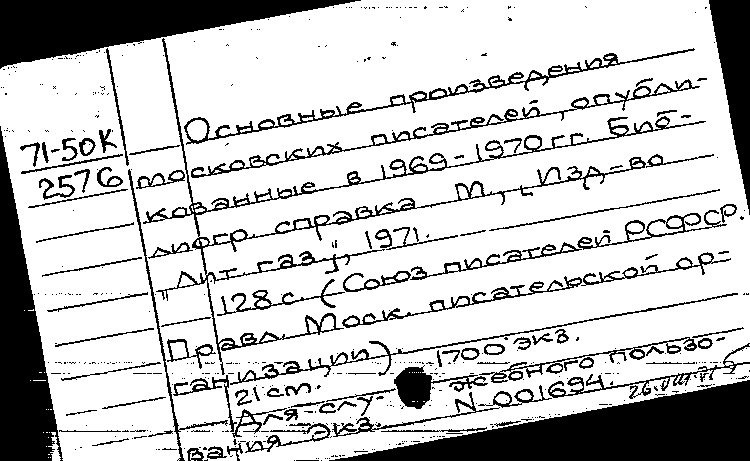 Основные произведения
71-50К
московских писателей, опубли-
2576
кованные в 1969-1970 гг. Биб-
лиогр. справка М., [Изд-во
„Лит. газ.", 1971.
128 с. (Союз писателей РСФСР.
Правл. Моск. писательской ор-
ганизации).
21 cm. 1700 экз.
Для слу- жебного пользо-
вания экз. N 001694.
26.VIII.71